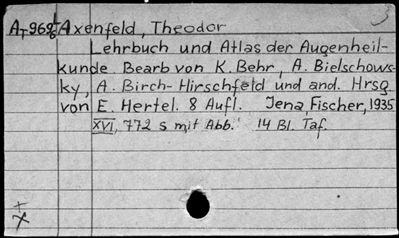 A-968/1 Axenfeld, Theodor
Lehrbuch und Atlas der Augenheil-
kunde. Bearb von K. Behr, A. Bielschows-
ky, A. Birch-Hirschfeld und and. Hrsg
von E. Hertel. 8 Aufl. Jena, Fischer, 1935
XVI, 772 s mit Abb. 14 Bl. Taf.